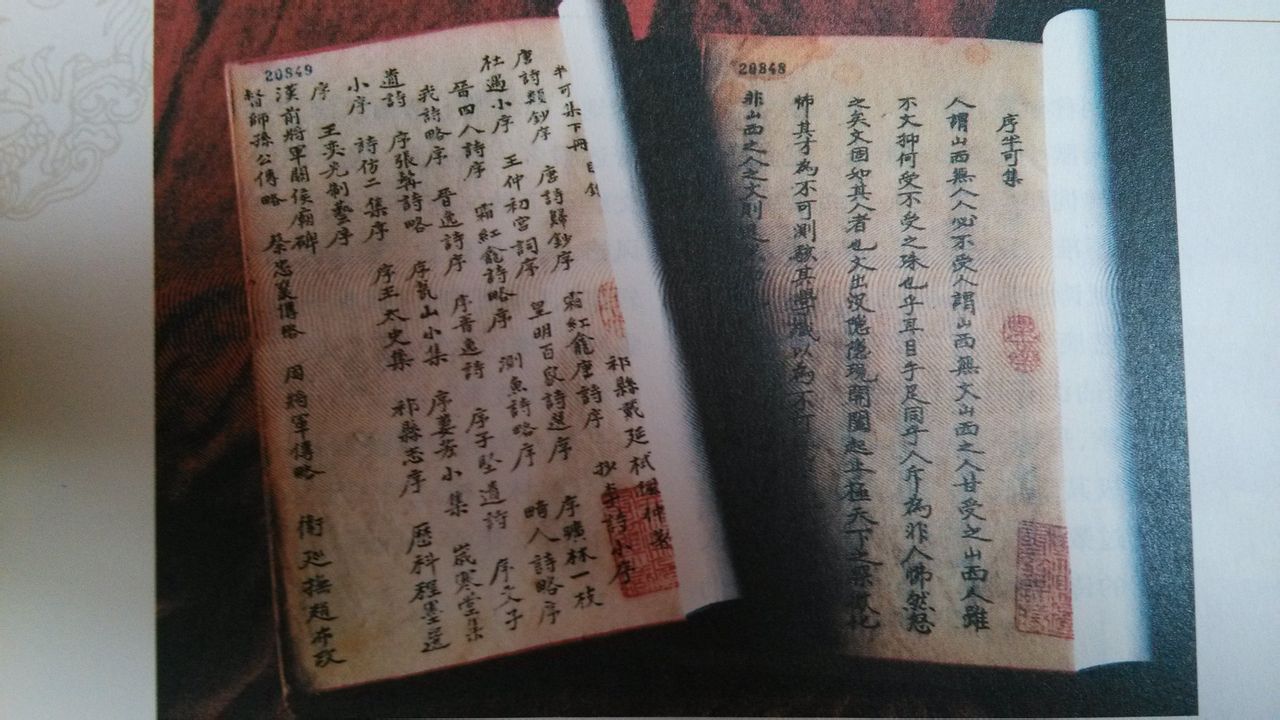 20848
序半可集
人謂山西無人人必不受人謂山西無文山西之人甘受之山西人雖
不文抑何受不受之殊也乎耳目手足同乎人斥為非人怫然怒
之矣文固如其人者也文出沒隱隱現開闔起止極天下之
怖其才為不可測駭其學識以為不可
非山西之人之文則
20849
半可集下冊目錄
祁縣戴廷栻楓仲著
唐詩類鈔序 唐詩歸鈔序 霜紅龕唐詩序 抄杜詩小序
杜遇小序 王仲初宮詞序 皇明百家詩選序 序曠林一枝
晉四人詩序 霜紅龕詩略序 測魚詩略序 時人詩略序
我詩略序 晉逸詩序 序晉逸詩 序子堅遺詩 序文子
遺詩 序張詩略 序山小集 序婁秀小集 歲寒堂集
小序 詩仿二集序 序王太史集 祁縣志序 歷科程墨選
序 王奕克制藝序
漢前將軍關侯廟碑
督師孫公傳略 蔡忠襄傳略 周將軍傳略 衛巡撫趙布政